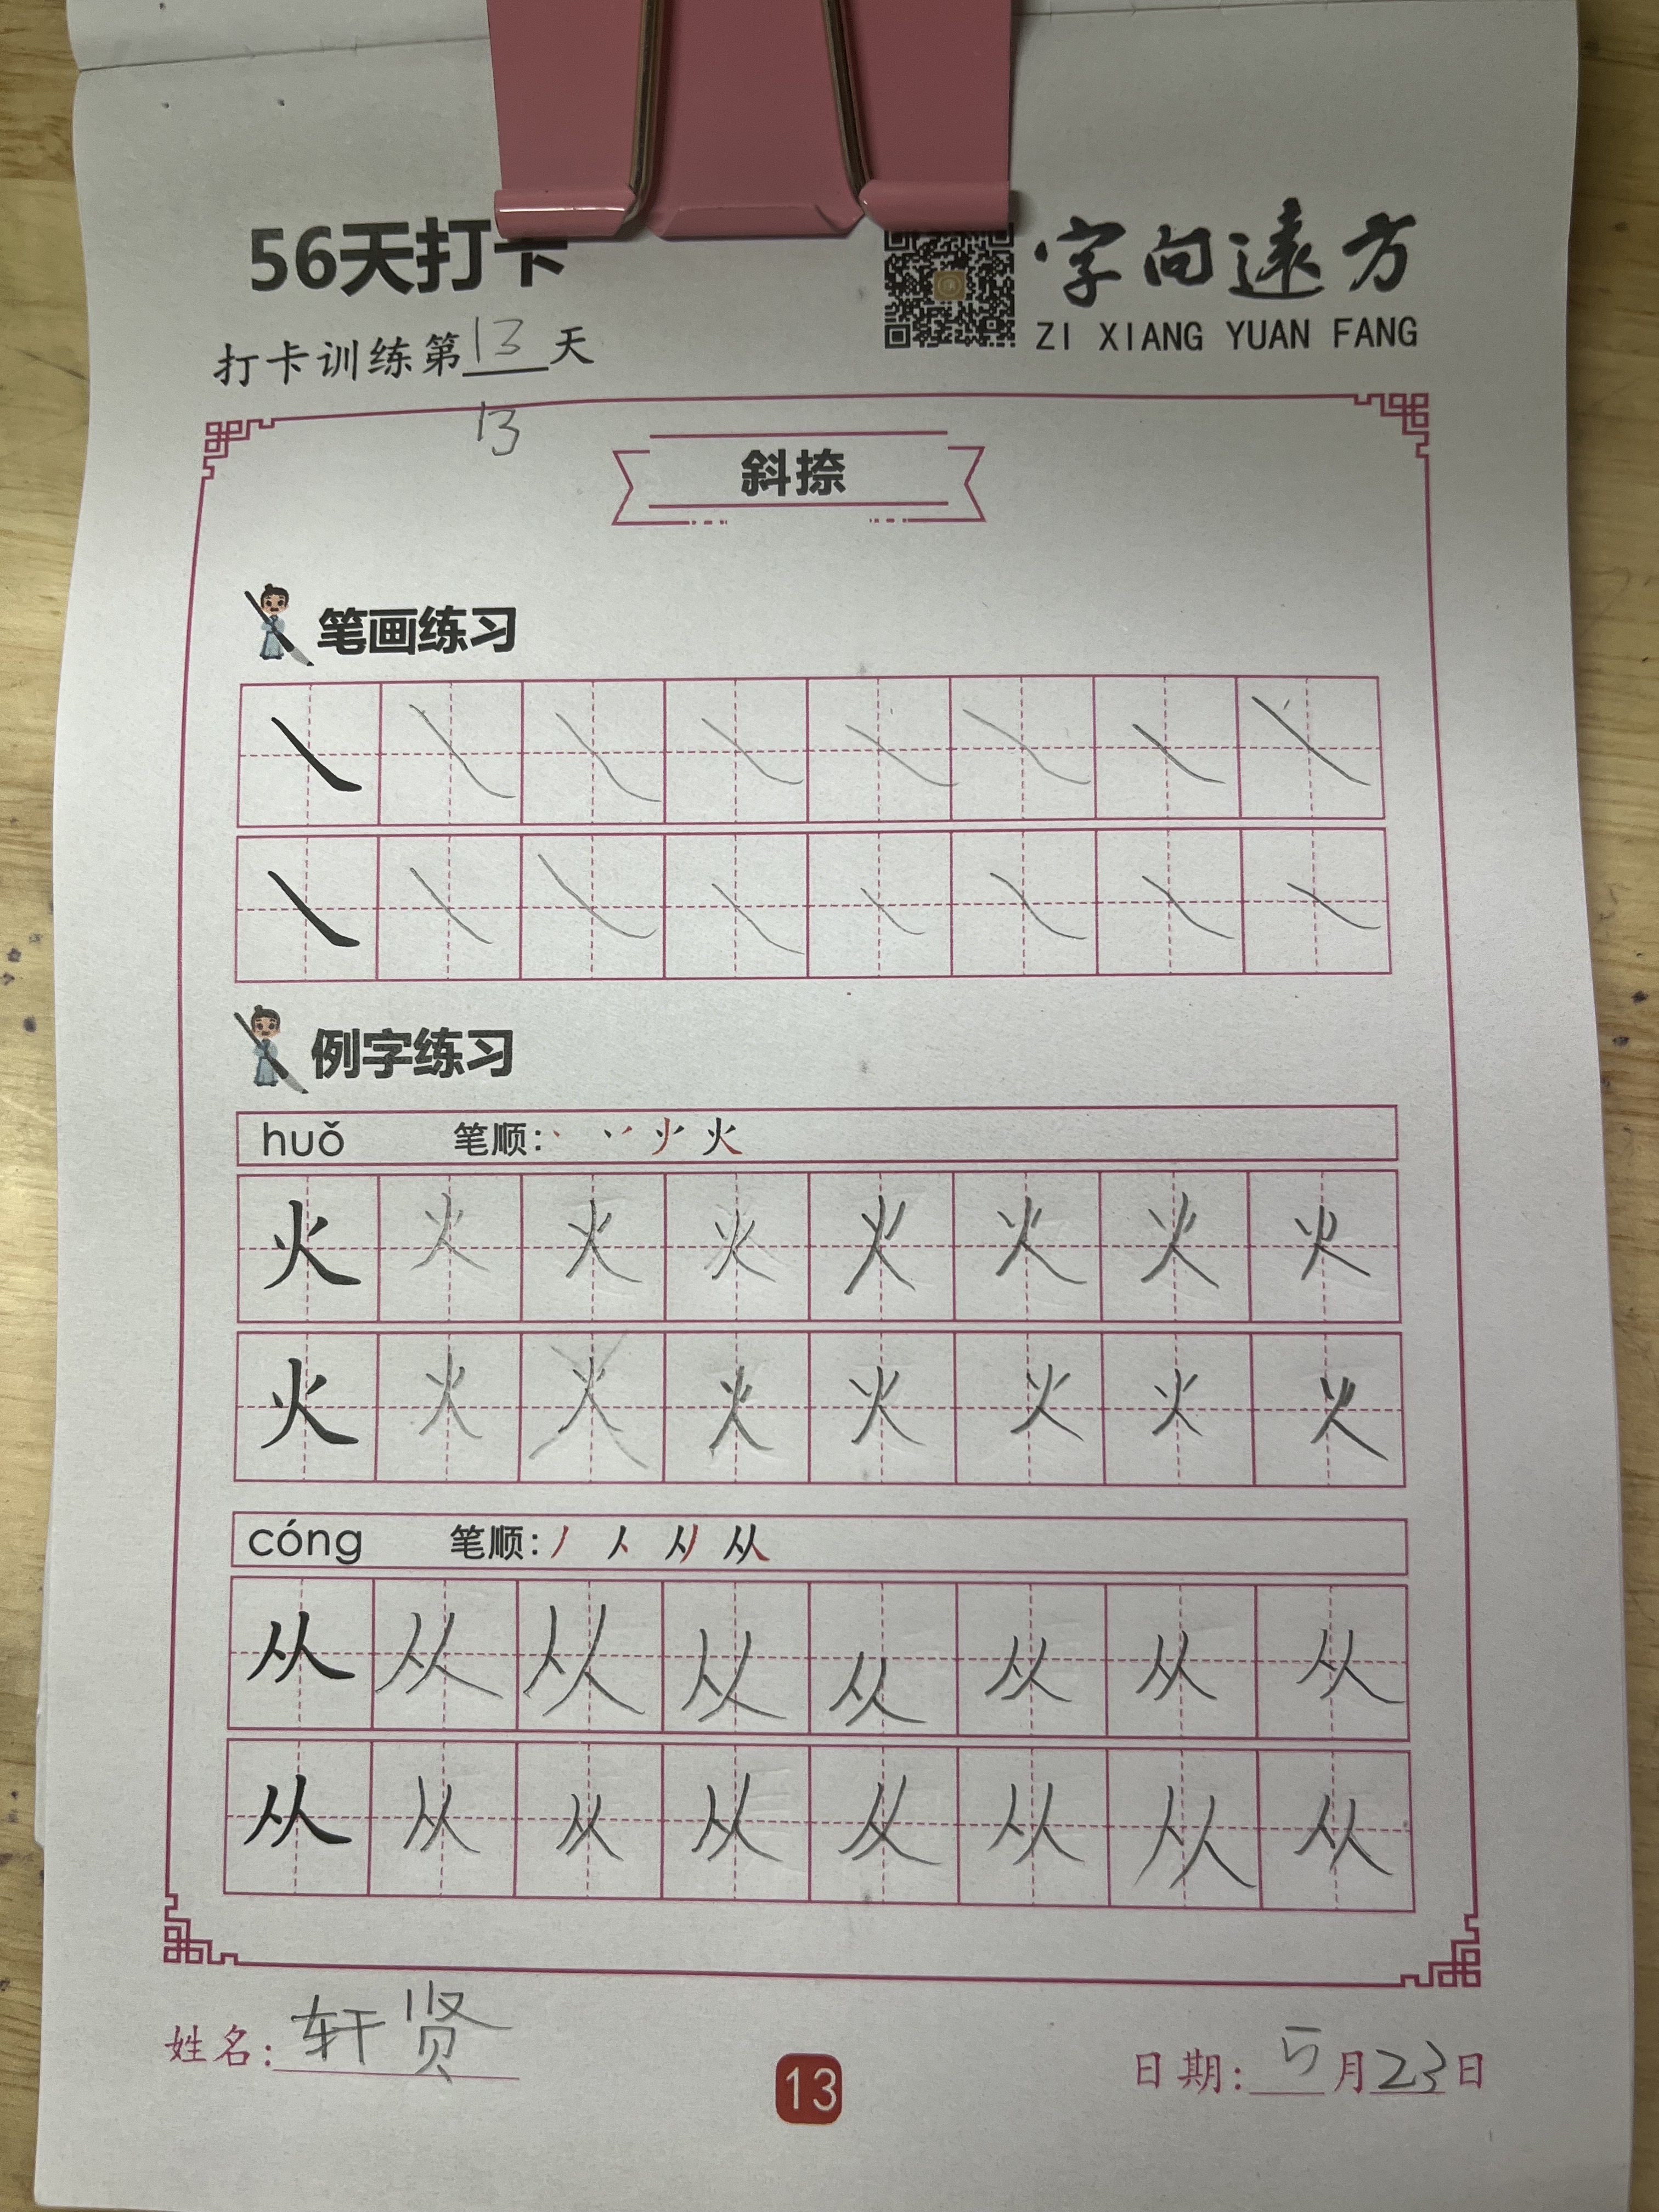 56天打卡
字向遠方
ZI XIANG YUAN FANG
打卡训练第13天
13
斜捺
笔画练习
例字练习
huǒ 笔顺:
火 火 火 火 火 火 火 火
火 火 火 火 火 火 火 火
cóng 笔顺:
从 从 从 从 从 从 从 从
从 从 从 从 从 从 从 从
姓名:轩贤
13
日期:5月23日